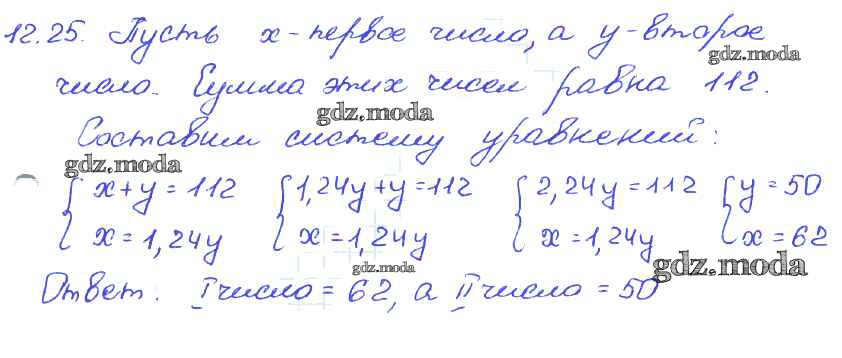 12.25. Пусть x - первое число, а y - второе
gdz.moda
число. Сумма этих чисел равна 112.
gdz.moda
Составим систему уравнений:
gdz.moda
{ x + y = 112 { 1,24y + y = 112 { 2,24y = 112 { y = 50
x = 1,24y x = 1,24y x = 1,24y x = 62
gdz.moda
gdz.moda
Ответ: I число = 62, а II число = 50